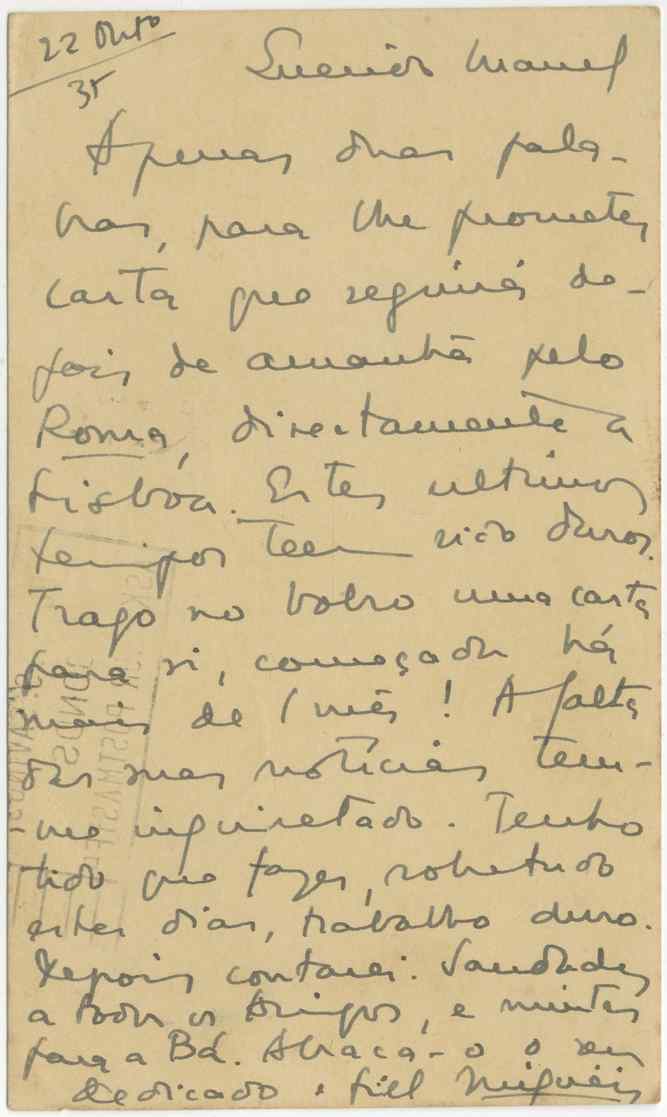 22 Outo
35
Querido Manuel
Apenas duas pala-
vras, para lhe prometer
carta que seguirá de-
pois de amanhã pelo
Roma, directamente a
Lisbôa. Estes ultimos
tempos teem sido duros.
Trago no bolso uma carta
para si, começada há
mais de 1 mês! A falta
das suas notícias tem-
-me inquietado. Tenho
tido que fazer, sobretudo
estes dias, trabalho duro.
Depois contarei. Saudades
a todos os Amigos, e muitas
para a Bá. Abraça-o o seu
Dedicado e fiel Migueis